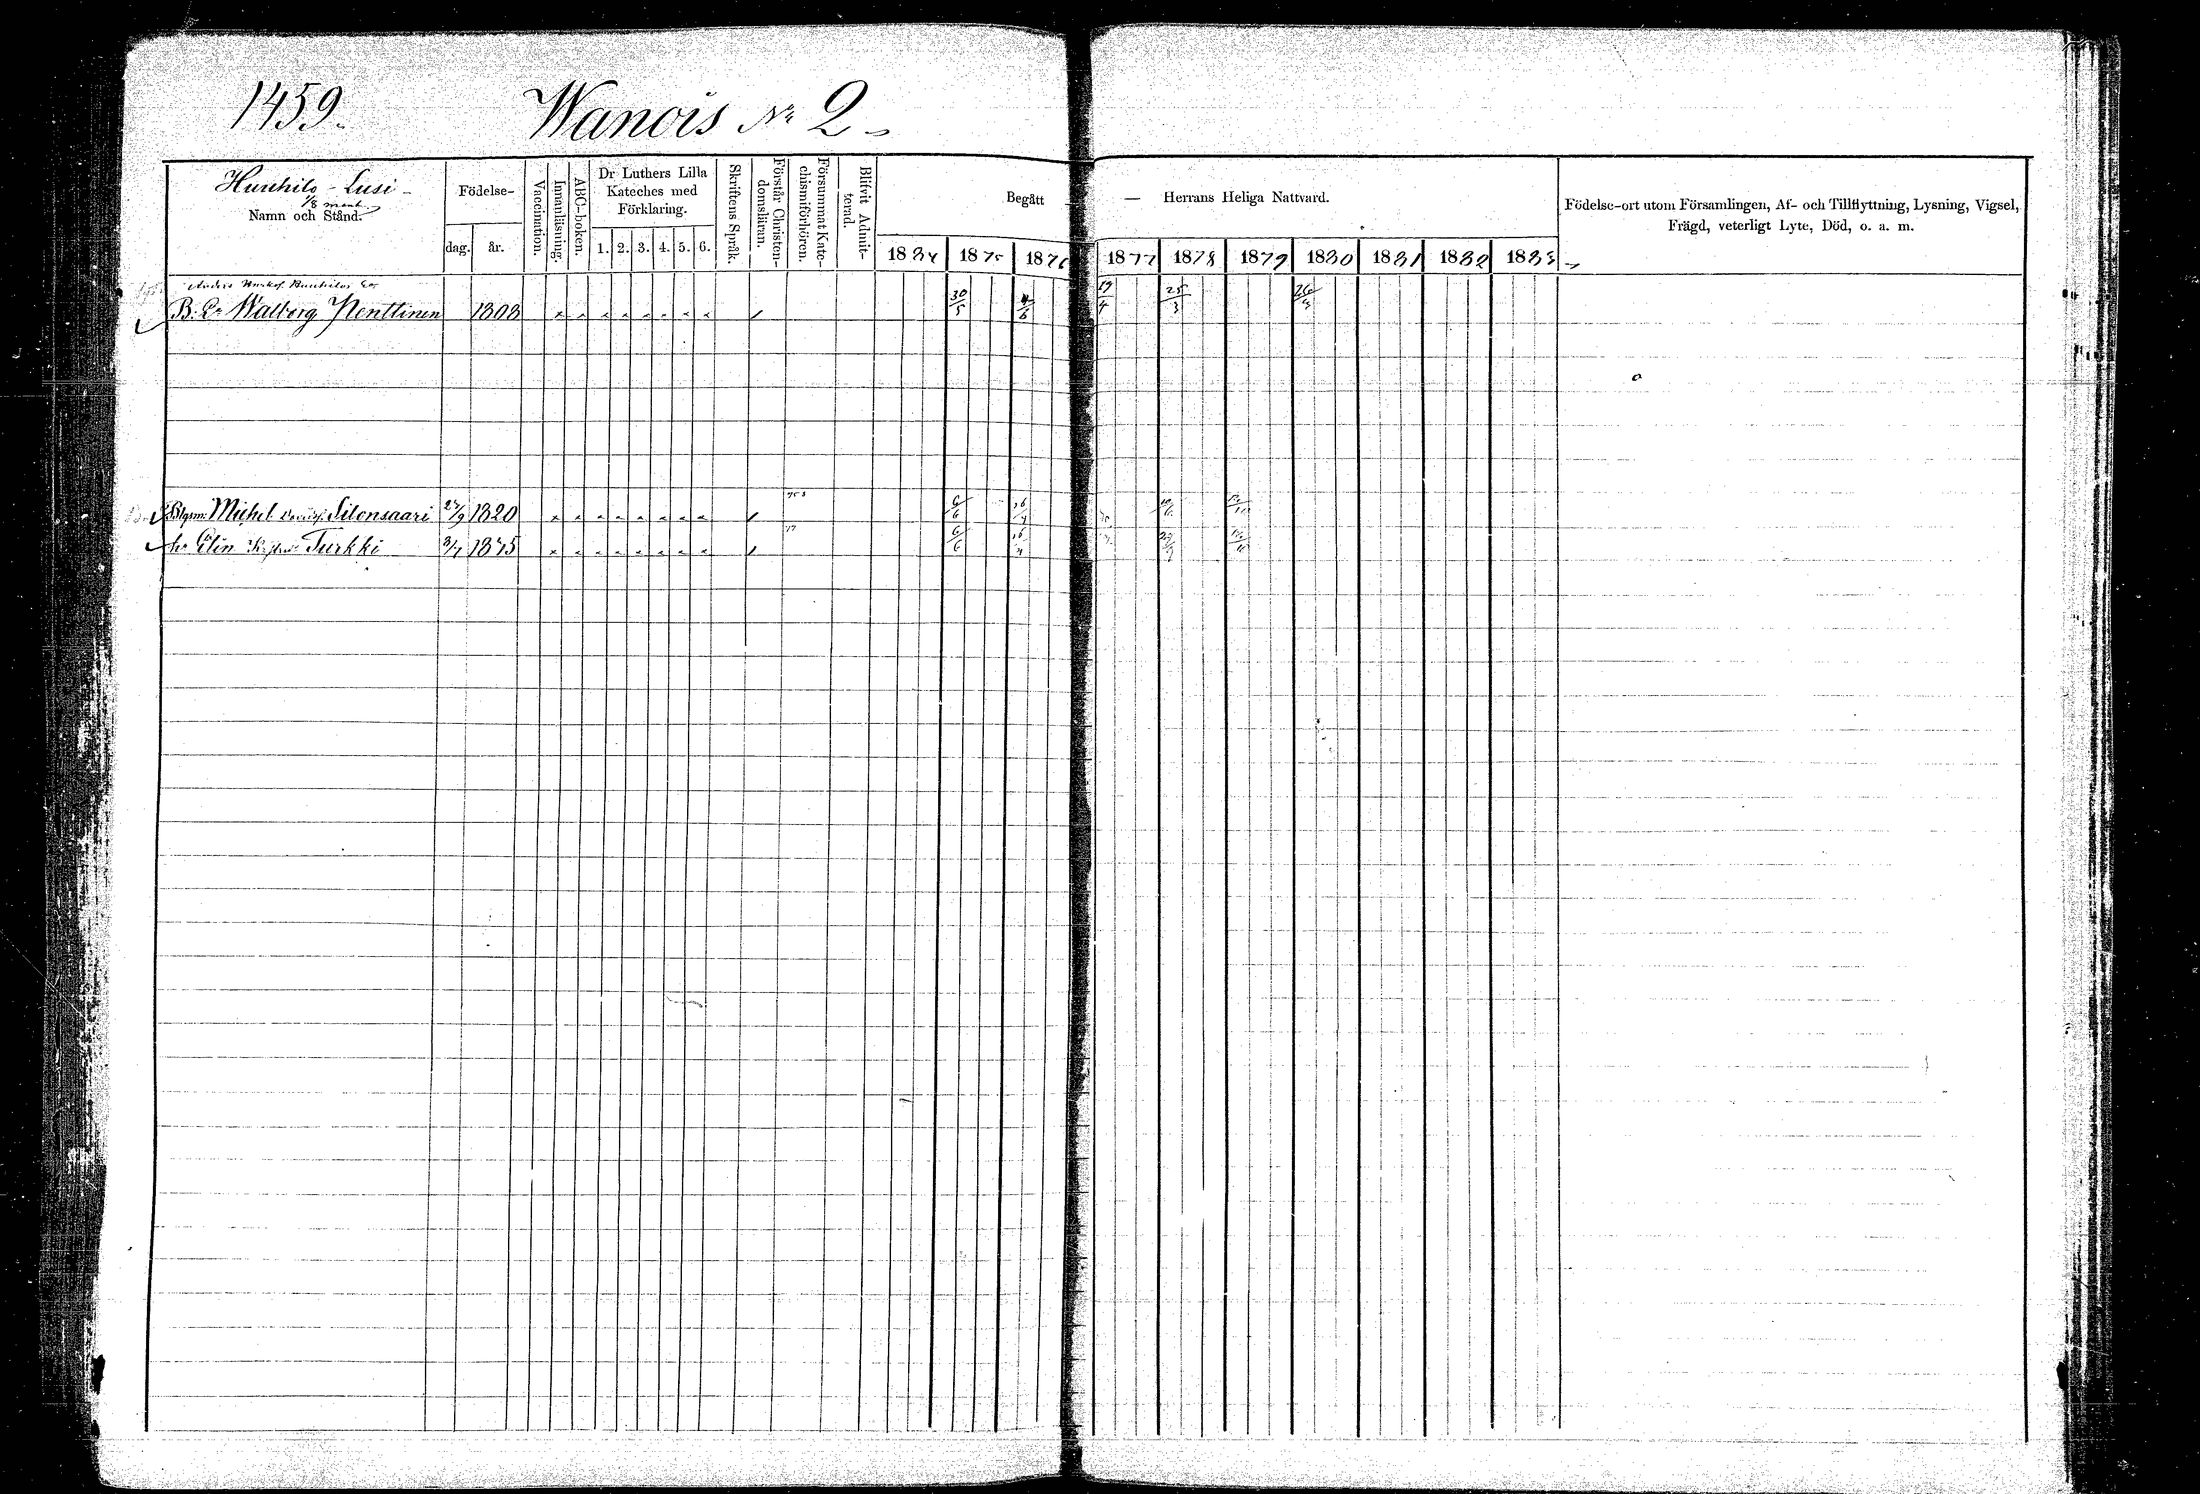 1459.
Wanois № 2
Huuhilo - Lusi -
1/8 mant.
Namn och Stånd.
Födelse-
dag.
år.
Vaccination.
Innanläsning.
ABC-boken.
Dr Luthers Lilla
Kateches med
Förklaring.
1. 2. 3. 4. 5. 6.
Skriftens Språk.
Förstår Christen-
domsläran.
Försummat Kate-
chismiförhören.
Blifvit Admit-
terad.
Begått — Herrans Heliga Nattvard.
1884 1875 1876 1877 1878 1879 1880 1881 1882 1883
Födelse-ort utom Församlingen, Af- och Tillflyttning, Lysning, Vigsel,
Frägd, veterligt Lyte, Död, o. a. m.
Anders
B. Er Walborg Penttinen 1808 30/5 4/6 19/4 25/3 26/3
Michel Silonsaari 27/9 1820 6/6 16/4
hu Elin Turkki 3/7 1845 6/6 16/4